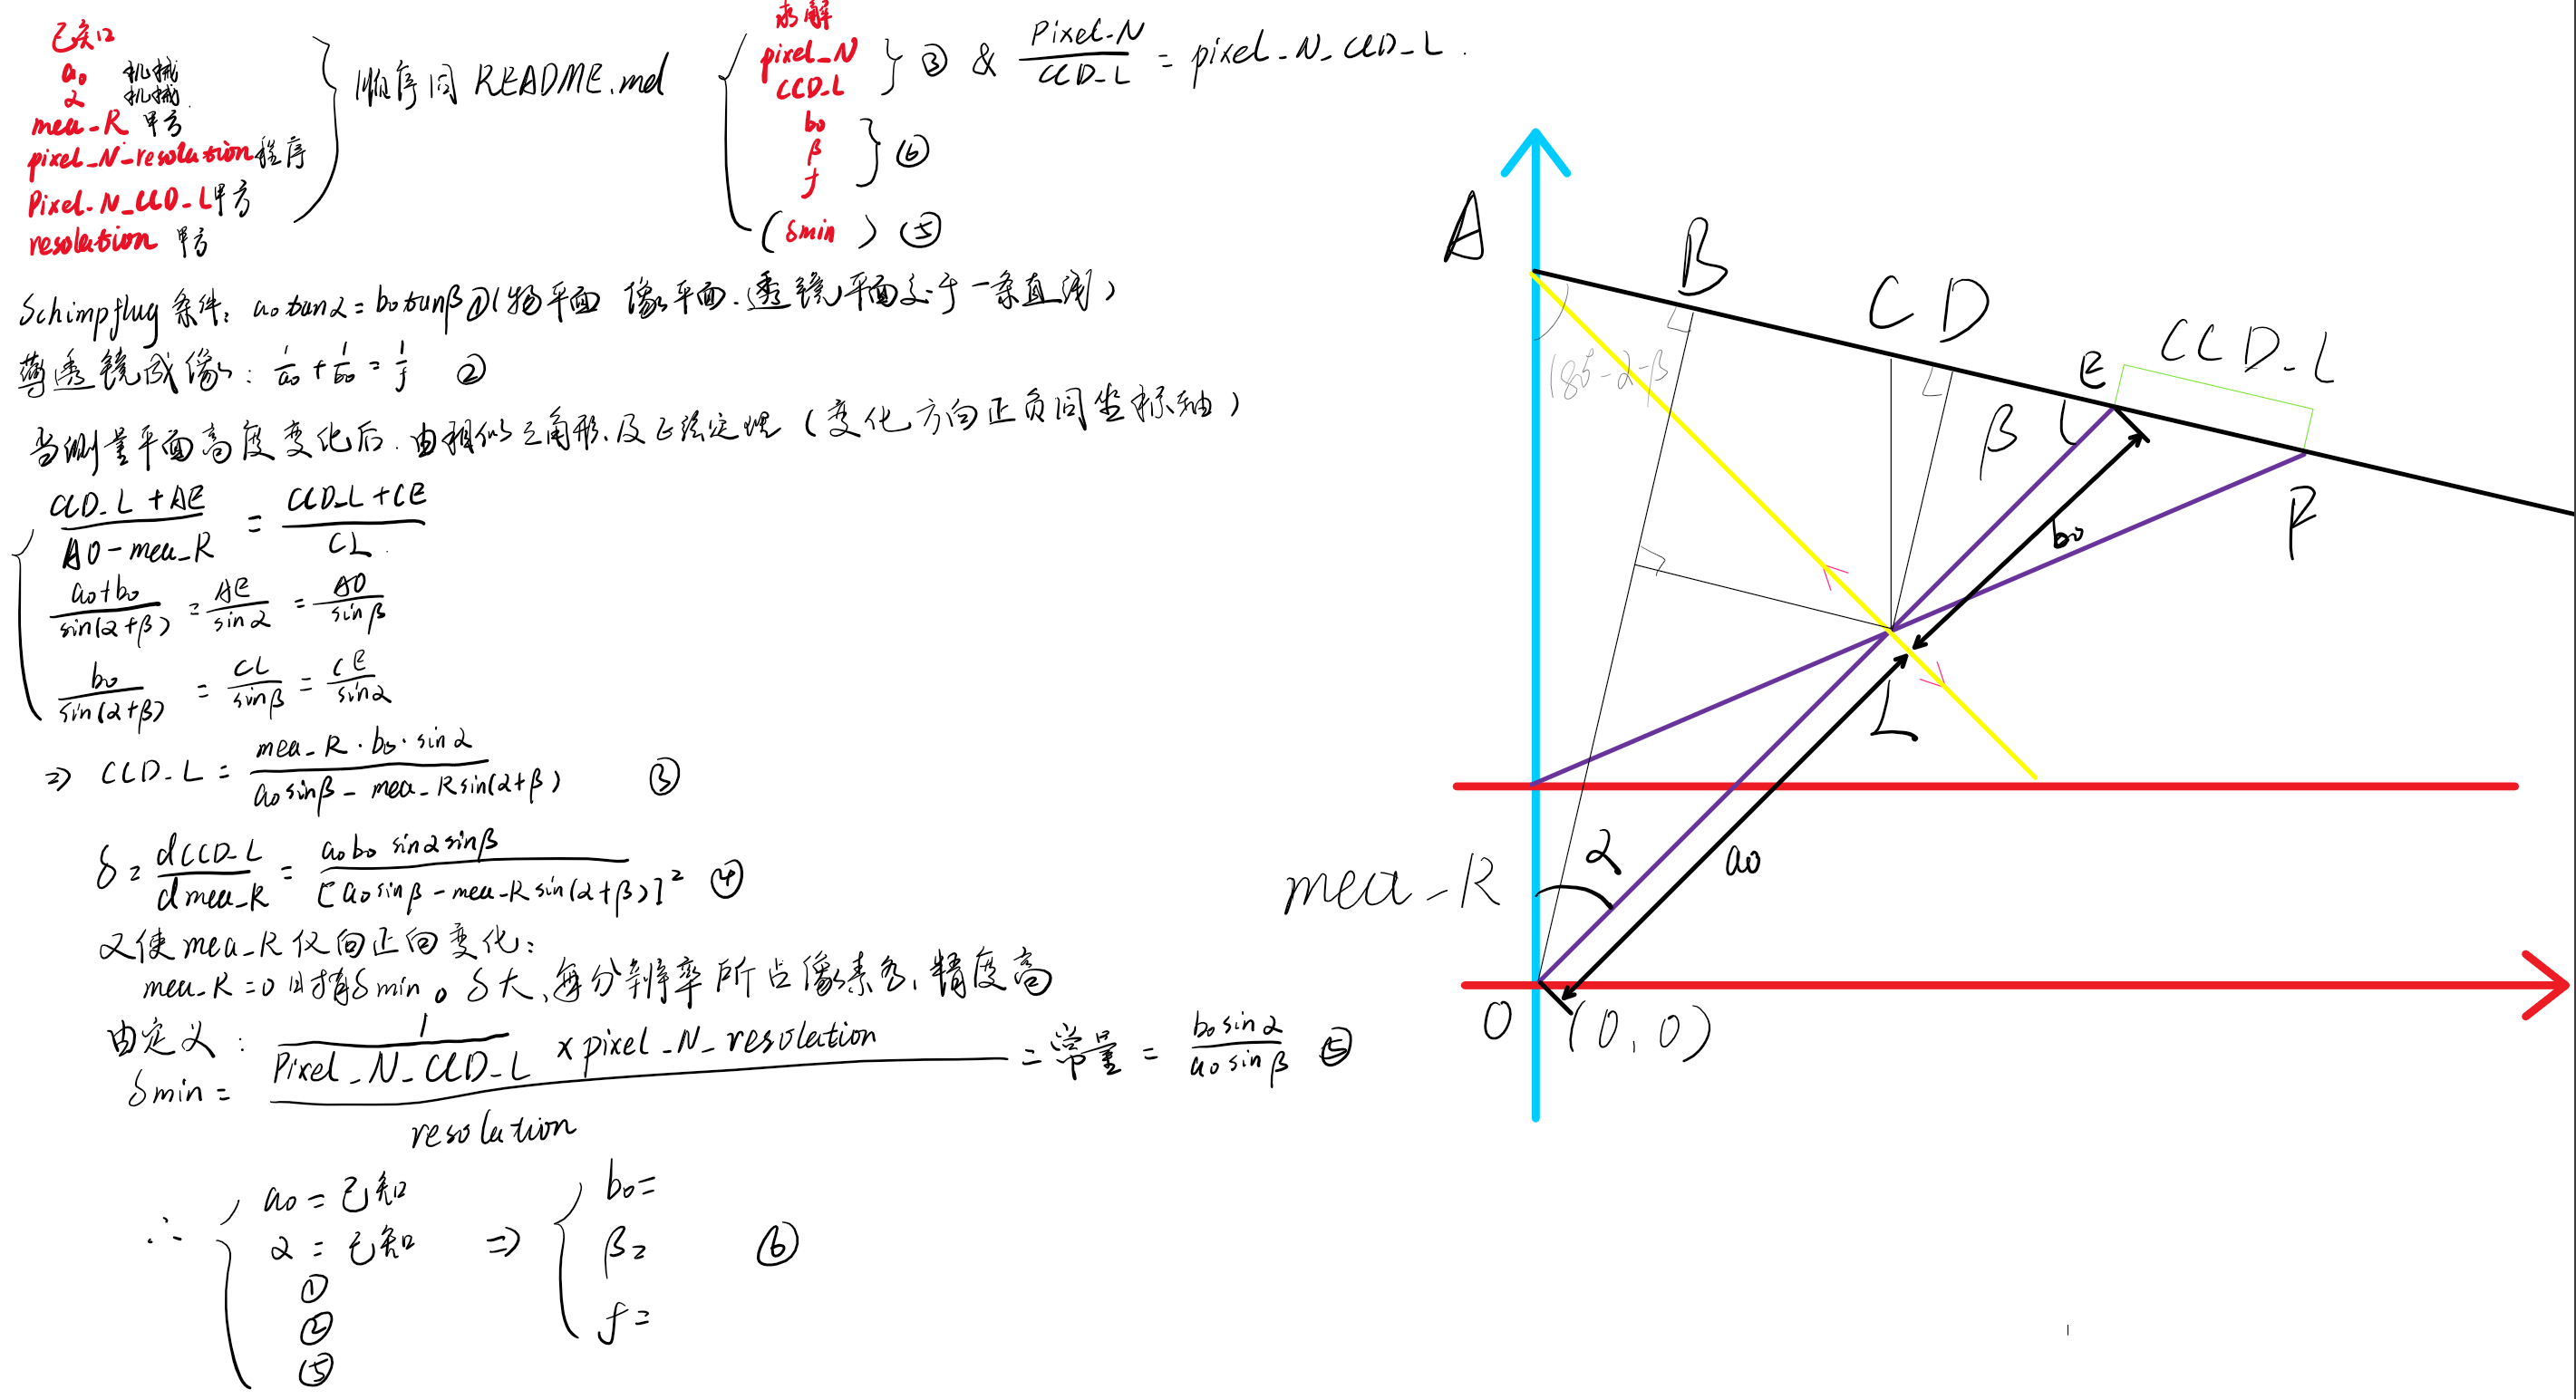 已知
a₀ 机械
α 机械
mea-R 甲方
pixel-N-resolation 程序
Pixel-N-CCD-L 甲方
resolation 甲方
顺序同 README.md
求解
pixel-N
CCD-L
③ & Pixel-N / CCD-L = pixel-N-CCD-L.
b₀
β
f
⑥
(δmin) ⑤
Schimpflug 条件: a₀tanα = b₀tanβ ① (物平面 像平面、透镜平面交于一条直线)
薄透镜成像: 1/a₀ + 1/b₀ = 1/f ②
当测量平面高度变化后. 由相似三角形、及正弦定理 (变化方向正负同坐标轴)
(CCD-L + AE) / (AO - mea-R) = (CCD-L + CE) / CL
(a₀+b₀) / sin(α+β) = AE / sinα = AO / sinβ
b₀ / sin(α+β) = CL / sinβ = CE / sinα
⇒ CCD-L = mea-R · b₀ · sinα / (a₀sinβ - mea-R sin(α+β)) ③
δ = dCCD-L / dmea-R = a₀b₀ sinα sinβ / [a₀sinβ - mea-R sin(α+β)]² ④
又使 mea-R 仅向正向变化:
mea-R = 0 时有 δmin。δ大、每分辨率所占像素多, 精度高
由定义:
δmin = (1 / Pixel-N-CCD-L × pixel-N-resolation) / resolation = 常量 = b₀sinα / a₀sinβ ⑤
∴ a₀ = 已知
α = 已知
①
②
⑤
⇒ b₀ =
β =
f =
⑥
A
B
C D
E
CCD-L
180°-α-β
β
F
b₀
L
a₀
α
mea-R
O
(0,0)